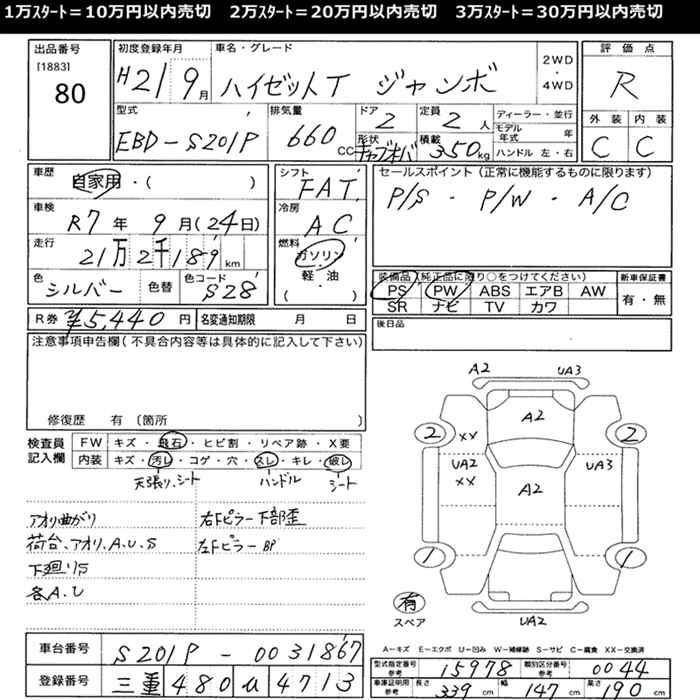 1万スタート＝10万円以内売切　2万スタート＝20万円以内売切　3万スタート＝30万円以内売切
出品番号
[1883]
80
初度登録年月
H21 9月
車名・グレード
ハイゼットT ジャンボ
2WD
・
4WD
評価点
R
型式
EBD-S201P
排気量
660
CC
ドア
2
定員
2人
形状
キャブオーバ
積載
350kg
ディーラー・並行
モデル年式 年
ハンドル 左・右
外装 内装
C C
車歴
自家用・( )
車検
R7年 9月(24日)
走行
21万2千189km
色
シルバー
色替
色コード
S28
シフト
FAT
冷房
AC
燃料
ガソリン
軽・油
( )
セールスポイント(正常に機能するものに限ります)
P/S・P/W・A/C
装備品(純正品に限り○をつけてください)
PS PW ABS エアB AW
SR ナビ TV カワ
新車保証書
有・無
R券 ¥5,440円
名変通知期限 月 日
後日品
注意事項申告欄(不具合内容等は具体的に記入して下さい)
修復歴 有〔箇所
検査員記入欄
FW キズ・飛石・ヒビ割・リペア跡・X要
内装 キズ・汚レ・コゲ・穴・スレ・キレ・破レ
天張り、シート ハンドル シート
アオリ曲がり
荷台、アオリ、A.U.S
下廻りS
各A.U
右Fピラー下部歪
左Fピラー BP
A2
UA3
A2
2
XX
2
UA2
XX
UA3
A2
1
1
有
スペア
UA2
車台番号
S201P-0031867
登録番号
三重 480 a 4713
A=キズ E=エクボ U=凹み W=補修跡 S=サビ C=腐食 XX=交換済
型式指定番号
参考
15978
類別区分番号
参考
0044
車庫証明用
参考
長さ 339cm
幅 147cm
高さ 190cm